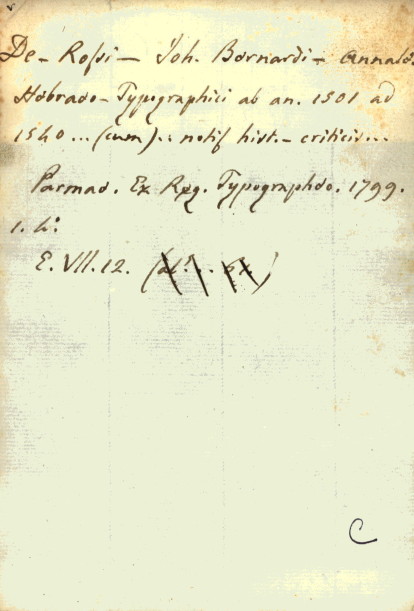 De- Rossi - Joh. Bernardi - Annales
Hebraeo-Typographici ab an. 1501 ad
1540 ... (cum) .. notis hist.- criticis...
Parmae. Ex Reg. Typographeo. 1799.
1. 4º
E. VII. 12.
C